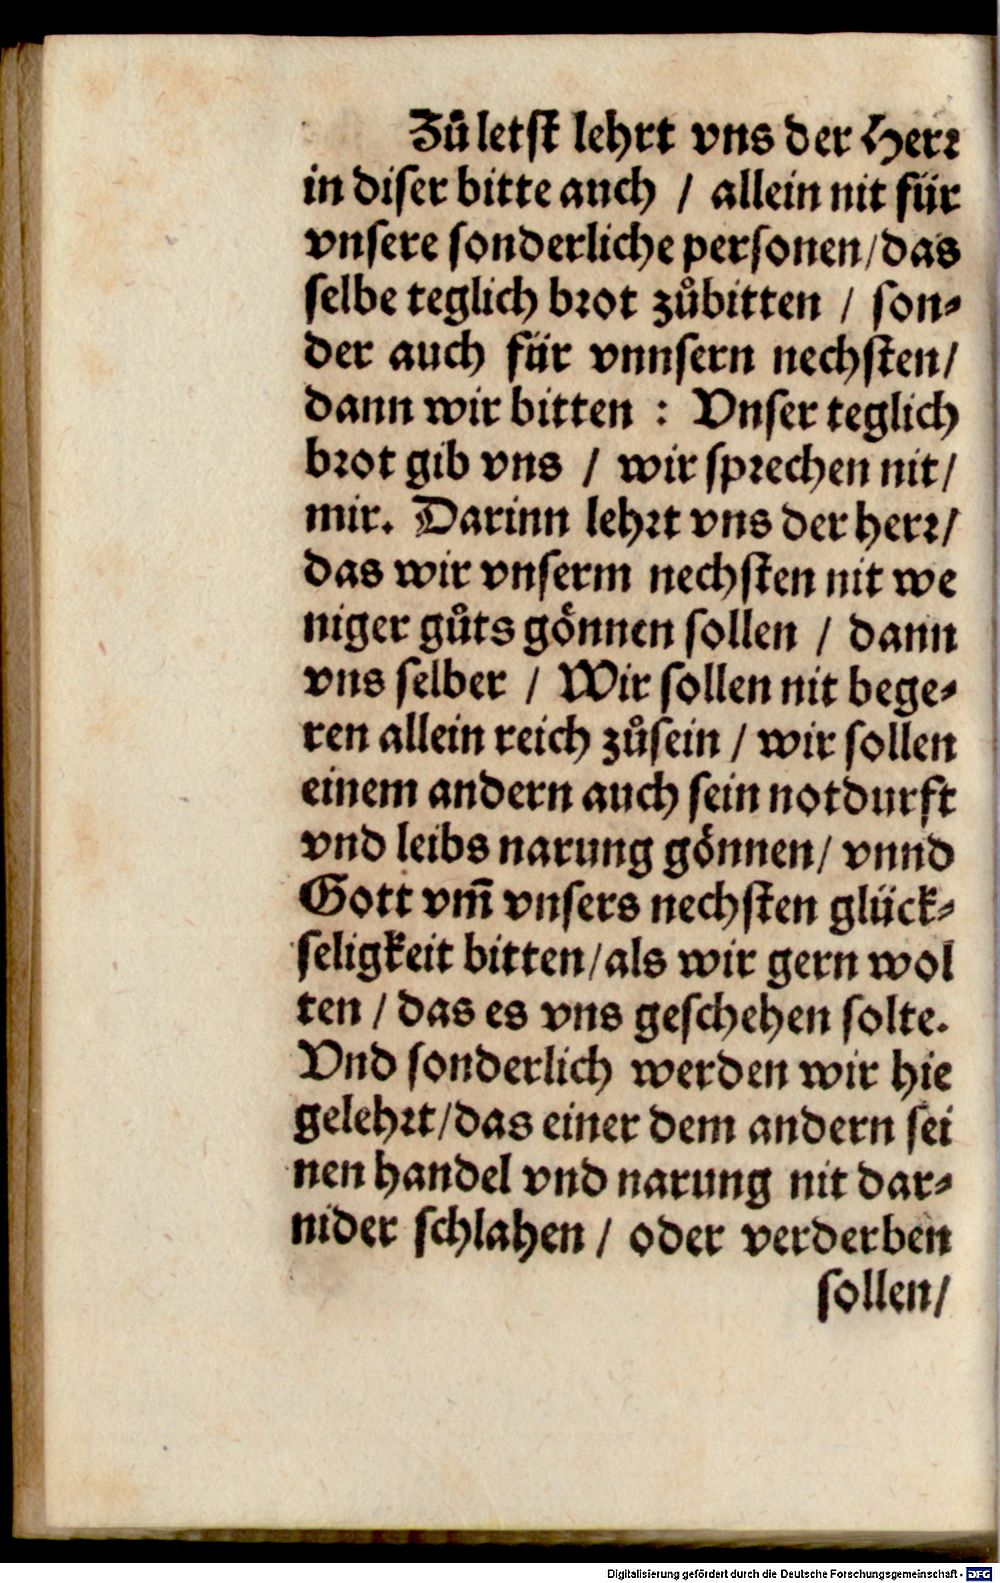 Zů letst lehrt vns der Herr
in diser bitte auch / allein nit für
vnsere sonderliche personen/das
selbe teglich brot zůbitten / son⸗
der auch für vnnsern nechsten/
dann wir bitten : Vnser teglich
brot gib vns / wir sprechen nit/
mir. Darinn lehrt vns der herr/
das wir vnserm nechsten nit we
niger gůts gönnen sollen / dann
vns selber / Wir sollen nit bege⸗
ren allein reich zůsein / wir sollen
einem andern auch sein notdurft
vnd leibs narung gönnen/ vnnd
Gott vm̃ vnsers nechsten glück⸗
seligkeit bitten/als wir gern wol
ten / das es vns geschehen solte.
Vnd sonderlich werden wir hie
gelehrt/das einer dem andern sei
nen handel vnd narung nit dar⸗
nider schlahen / oder verderben
sollen/
Digitalisierung gefördert durch die Deutsche Forschungsgemeinschaft - DFG